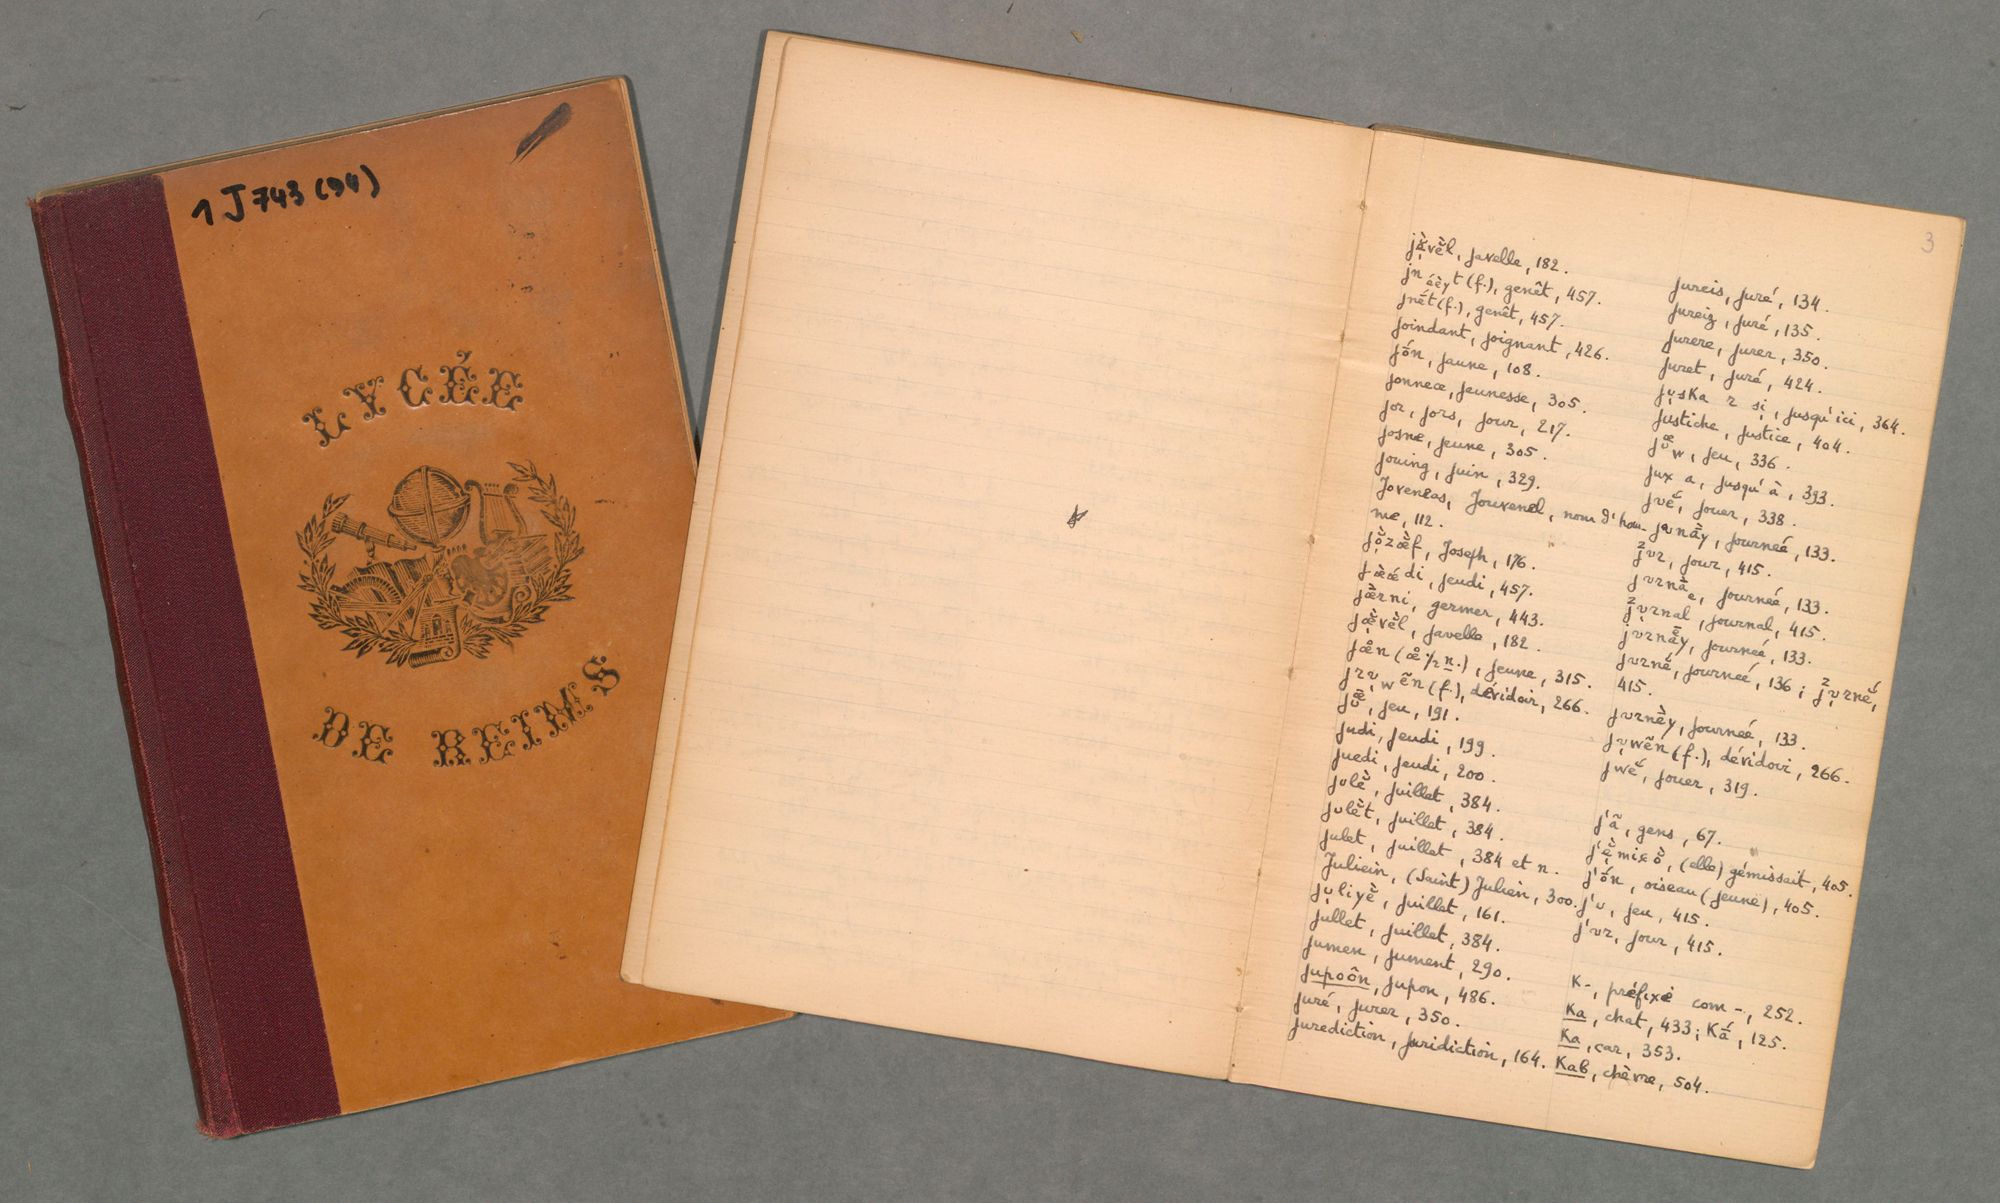 1 J 743 (94)
LYCÉE
DE REIMS
3
javelle, 182.
(f.), genêt, 457.
jnét (f.), genêt, 457.
joindant, joignant, 426.
jôn, jaune, 108.
jonnece, jeunesse, 305.
jor, jors, jour, 217.
josne, jeune, 305.
jouing, juin, 329.
Jouvenel, nom d'hom-
me, 112.
Joseph, 176.
jeudi, 457.
germer, 443.
javelle, 182.
jeune, 315.
(f.), dévidoir, 266.
jeu, 191.
judi, jeudi, 199.
juedi, jeudi, 200.
juillet, 384.
juillet, 384.
julet, juillet, 384 et n.
Juliein, (Saint) Julien, 300.
juillet, 161.
jullet, juillet, 384.
jumen, jument, 290.
jupoôn, jupon, 486.
juré, jurer, 350.
jurediction, juridiction, 164.
jureis, juré, 134.
jureiz, juré, 135.
jurere, jurer, 350.
juret, juré, 424.
jusqu'ici, 364.
justiche, justice, 404.
jeu, 336.
jux a, jusqu'à, 393.
jouer, 338.
journeé, 133.
jour, 415.
journeé, 133.
journal, 415.
journeé, 133.
journeé, 136;
415.
journeé, 133.
(f.), dévidoir, 266.
jouer, 319.
j'ã, gens, 67.
(elle) gémissait, 405.
oiseau (jeune), 405.
j'υ, jeu, 415.
j'υr, jour, 415.
K-, préfixe com-, 252.
Ka, chat, 433; Kâ, 125.
Ka, car, 353.
Kab, chèvre, 504.